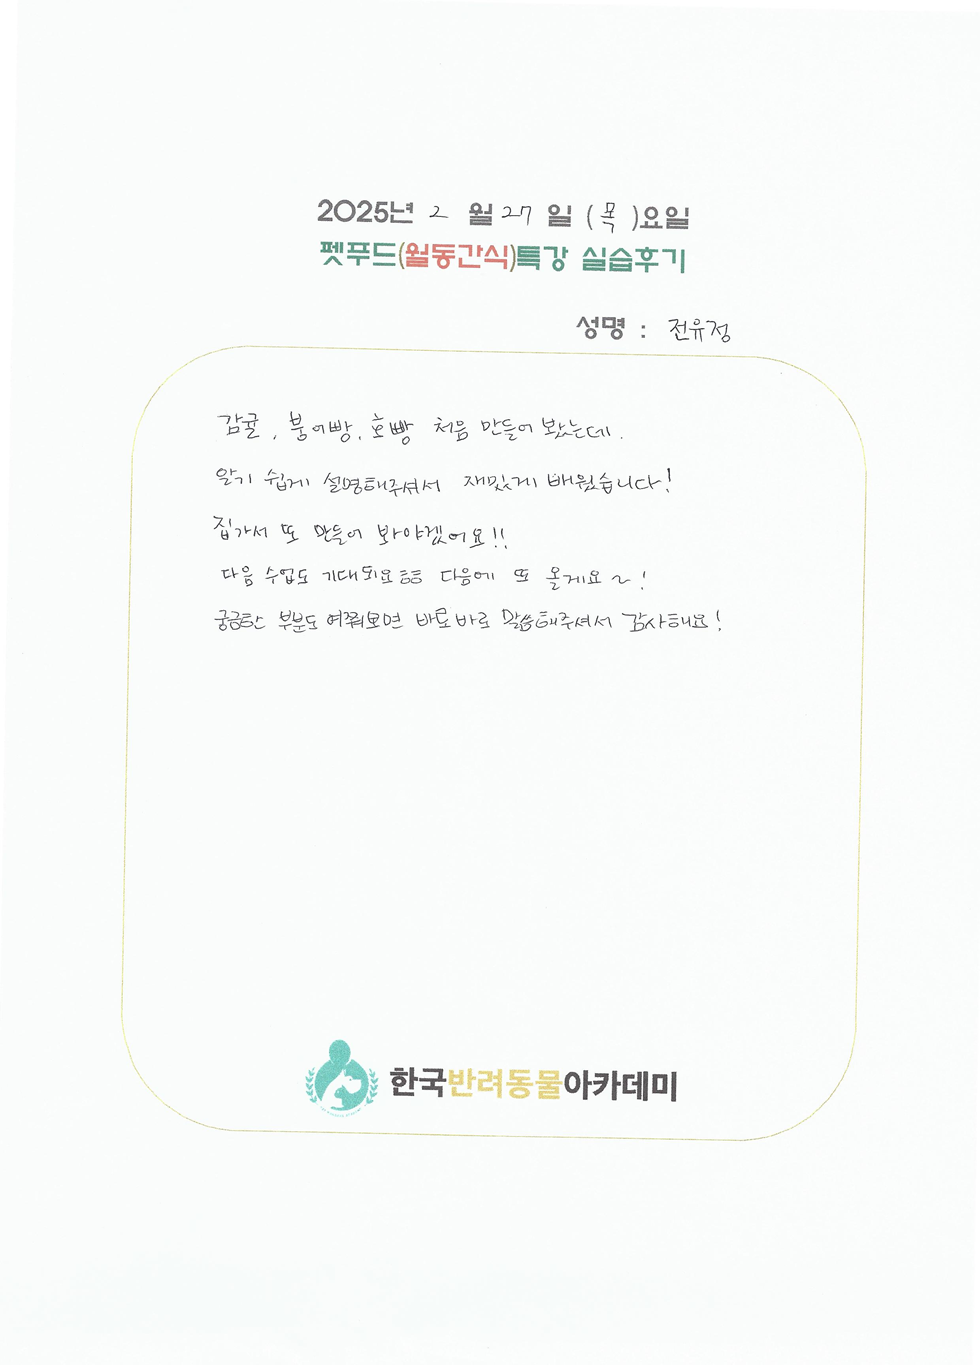 2025년 2 월 27 일 (목)요일
펫푸드(월동간식)특강 실습후기
성명 : 전유정
감귤, 붕어빵, 호빵 처음 만들어 봤는데.
알기 쉽게 설명해주셔서 재밌게 배웠습니다!
집가서 또 만들어 봐야겠어요!!
다음 수업도 기대되요ㅎㅎ 다음에 또 올게요~!
궁금한 부분도 여쭤보면 바로바로 말씀해주셔서 감사해요!
한국반려동물아카데미